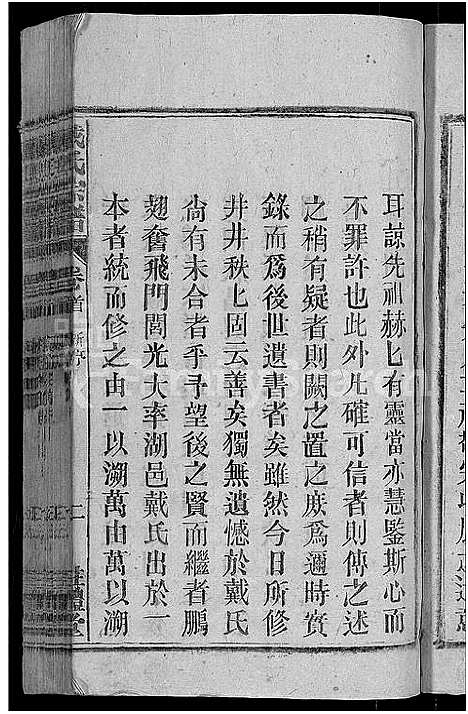 耳諒先祖赫匕有靈當亦慧鑒斯心而
不罪許也此外凡確可信者則傳之述
之稍有疑者則闕之置之庶爲邇時實
錄而爲後世遺書者矣雖然今日所修
井井秩匕固云善矣獨無遺憾於戴氏
尙有未合者乎予望後之賢而繼者鵬
翅奮飛門閭光大率湖邑戴氏出於一
本者統而修之由一以溯萬由萬以溯
戴氏宗譜
卷首
二